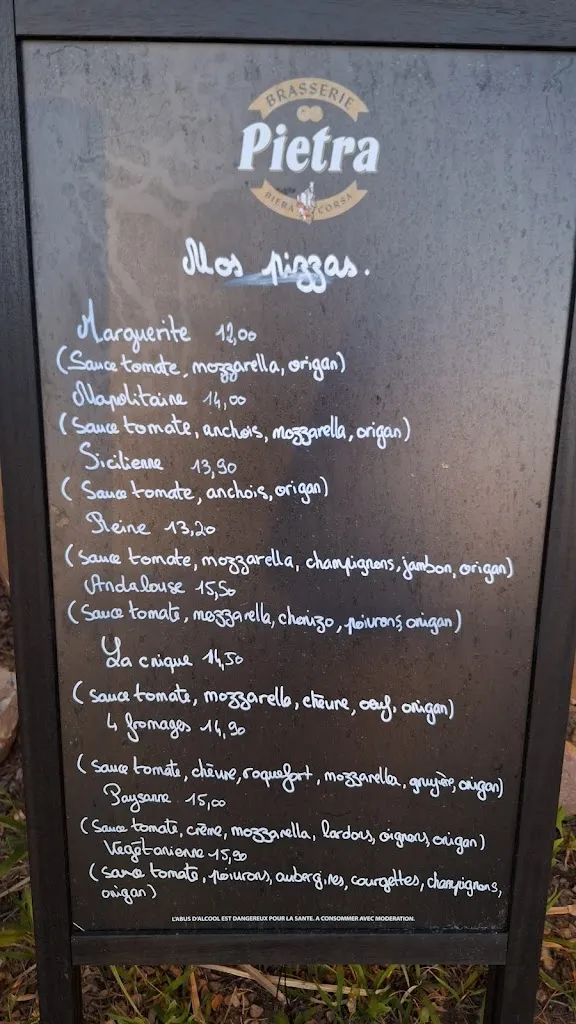 BRASSERIE
Pietra
BIERA CORSA
Mos pizzas.
Marguerite 12,00
(Sauce tomate, mozzarella, origan)
Napolitaine 14,00
(Sauce tomate, anchois, mozzarella, origan)
Sicilienne 13,90
(Sauce tomate, anchois, origan)
Reine 13,20
(Sauce tomate, mozzarella, champignons, jambon, origan)
Andalouse 15,50
(Sauce tomate, mozzarella, chorizo, poivrons, origan)
La crique 14,50
(Sauce tomate, mozzarella, chèvre, oeuf, origan)
4 fromages 14,90
(Sauce tomate, chèvre, roquefort, mozzarella, gruyère, origan)
Paysanne 15,00
(Sauce tomate, crème, mozzarella, lardons, oignons, origan)
Végétarienne 15,90
(Sauce tomate, poivrons, aubergines, courgettes, champignons,
origan)
L'ABUS D'ALCOOL EST DANGEREUX POUR LA SANTE. A CONSOMMER AVEC MODERATION.